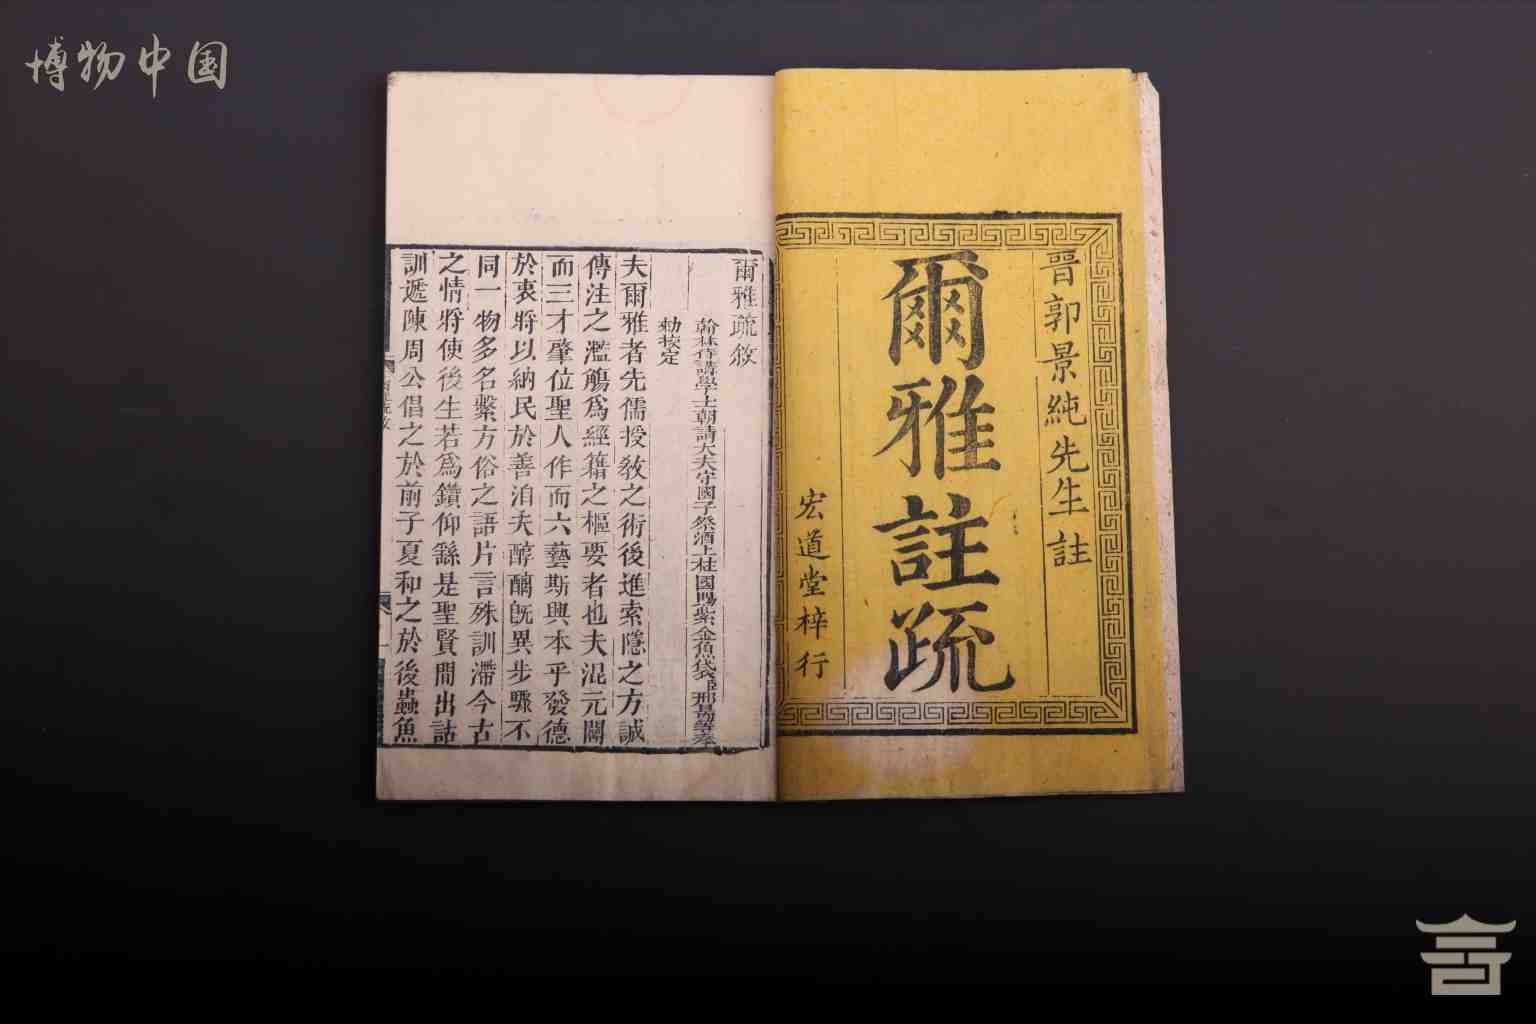 博物中国
晉郭景純先生註
爾雅註疏
宏道堂梓行
爾雅疏敘
翰林侍講學士朝請大夫守國子祭酒上柱國賜紫金魚袋臣邢昺等奉
勑挍定
夫爾雅者先儒授敎之術後進索隱之方誠
傳注之濫觴爲經籍之樞要者也夫混元闢
而三才肇位聖人作而六藝斯興本乎發德
於衷將以納民於善洎夫醇醨旣異步驟不
同一物多名繫方俗之語片言殊訓滯今古
之情將使後生若爲鑽仰繇是聖賢間出詁
訓遞陳周公倡之於前子夏和之於後蟲魚